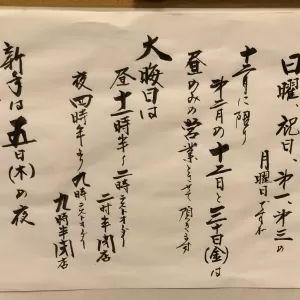 日曜、祝日、第一、第三の
月曜日です
十二月に限り
第二月の十二日と三十日(金)は
昼のみの営業とさせて頂きます
大晦日は
昼十一時半〜二時ラストオーダー
二時半閉店
夜四時半〜九時ラストオーダー
九時半閉店
新年は五日(木)の夜